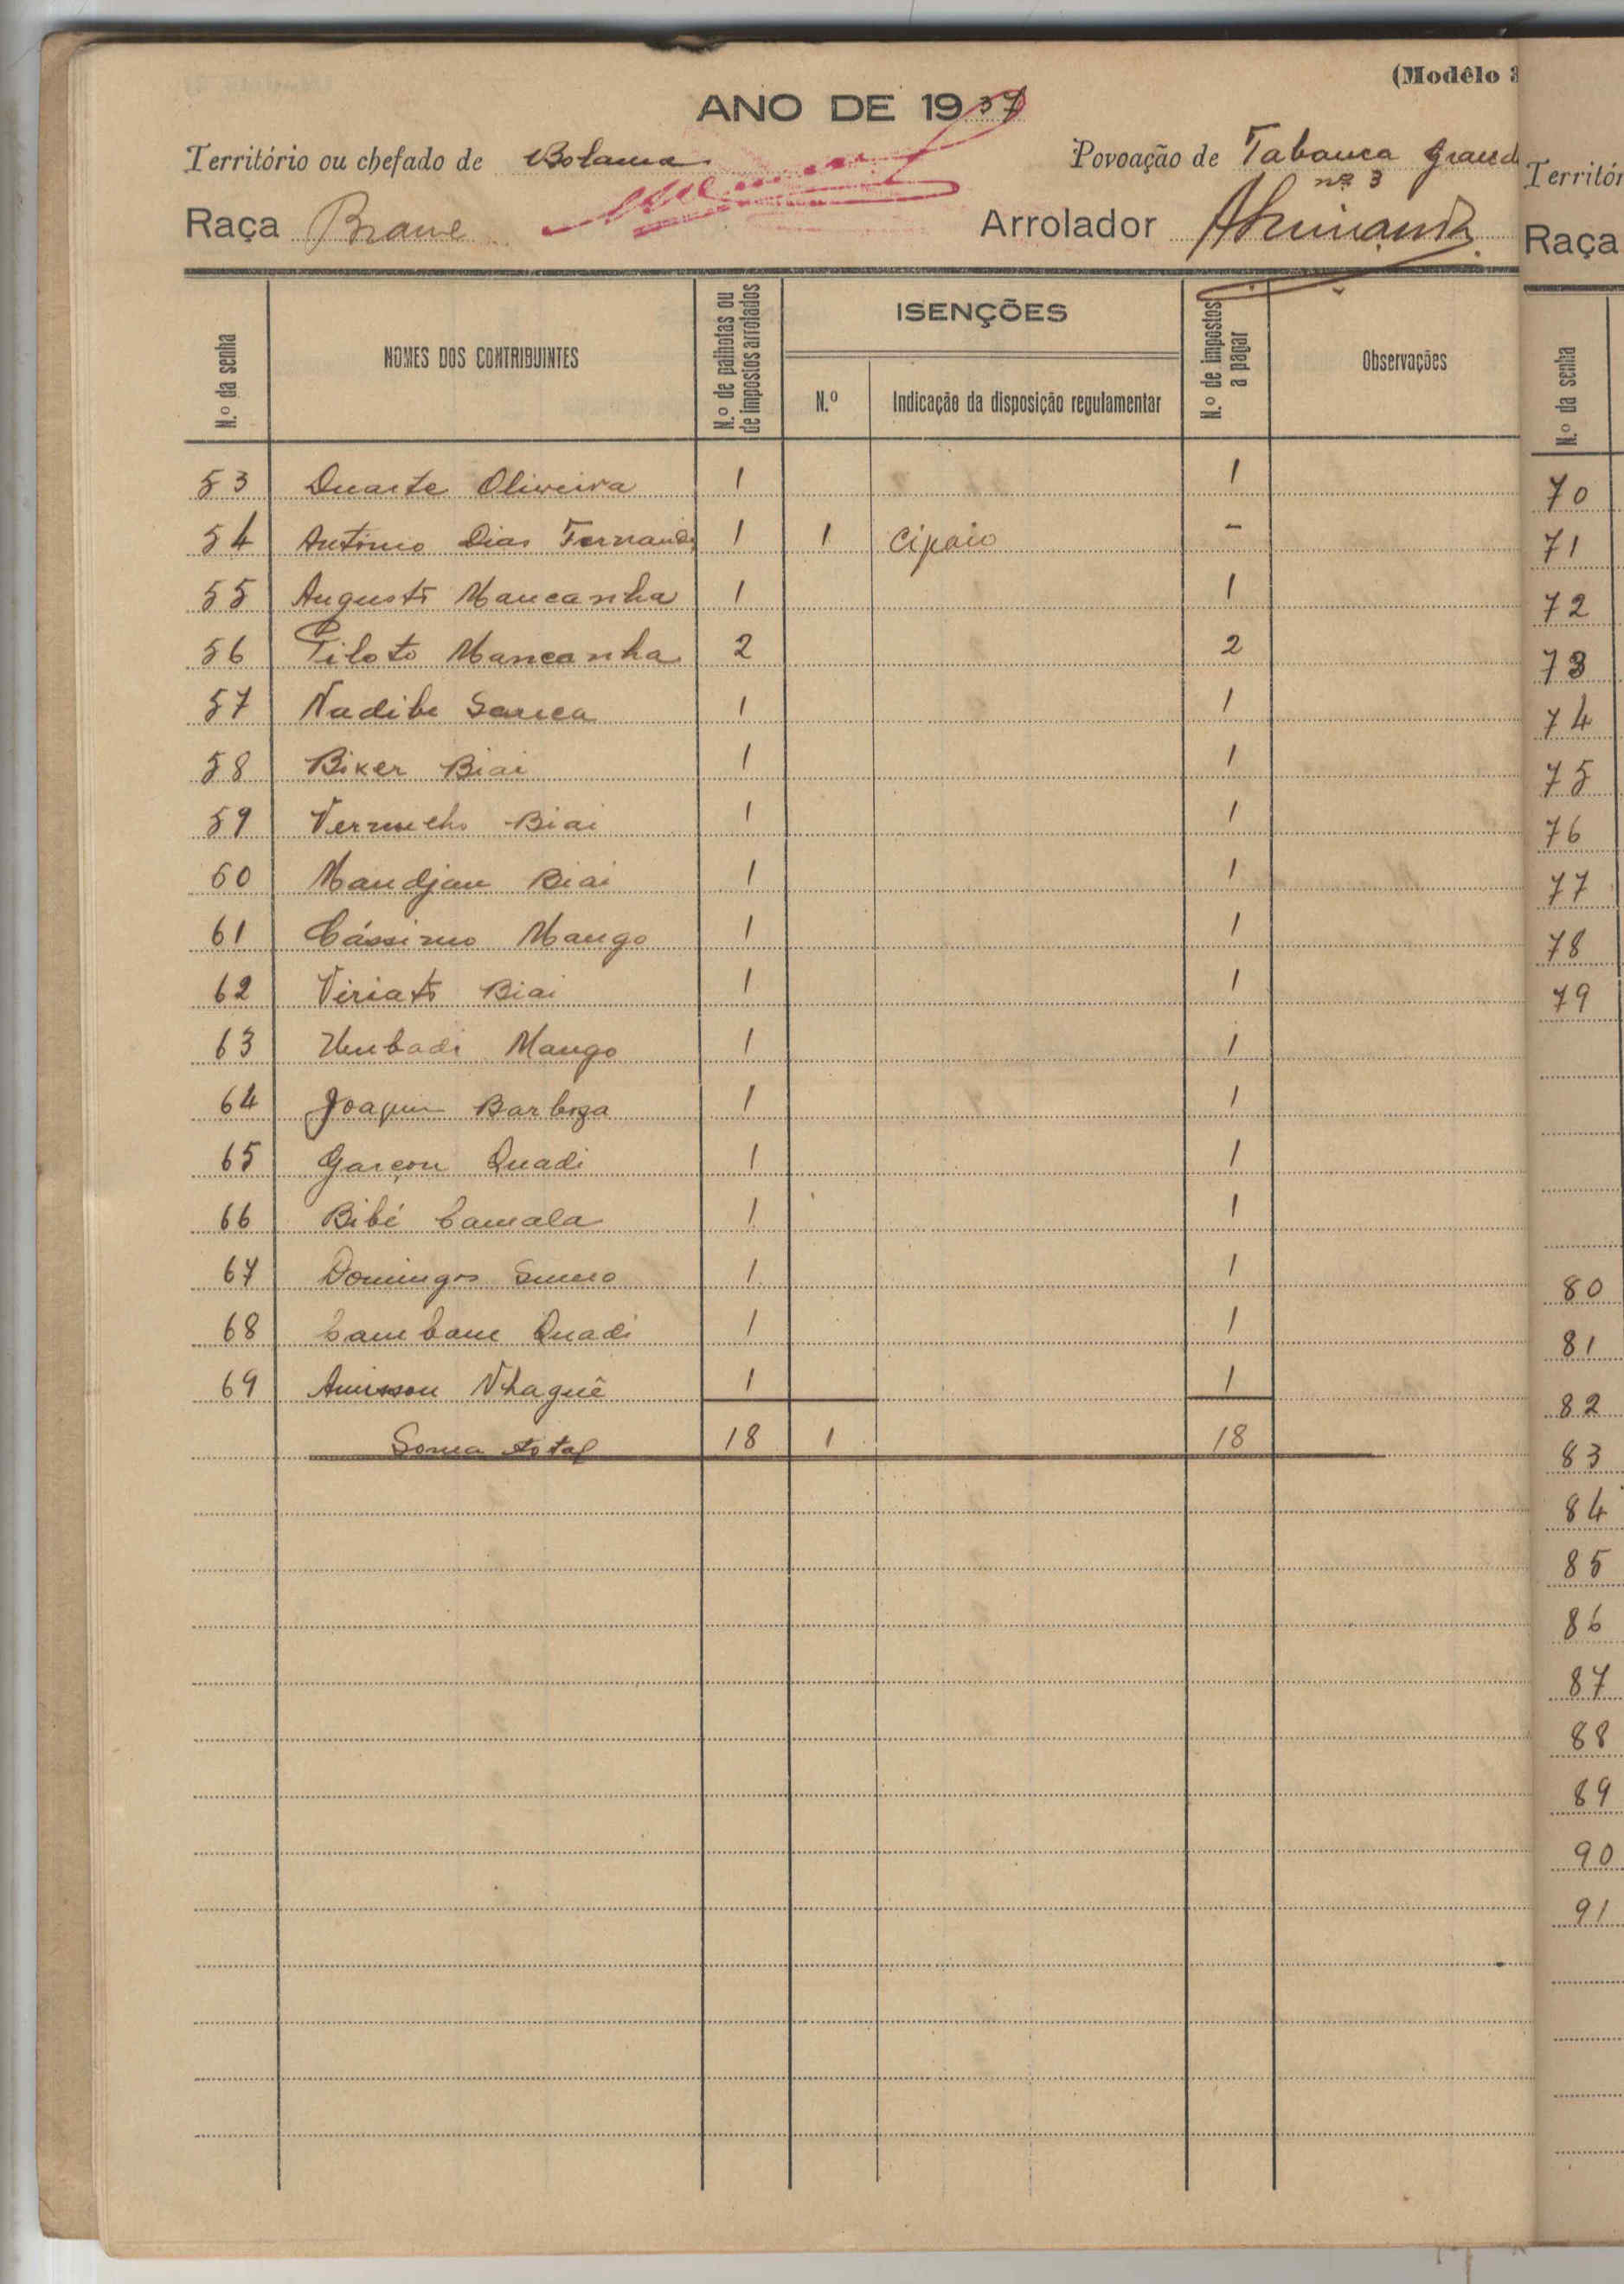 (Modêlo 3
ANO DE 1937
Território ou chefado de Bolama Povoação de Tabanca Grand
nº 3
Raça Brame Arrolador
N.º da senha NOMES DOS CONTRIBUINTES N.º de palhotas ou de impostos arrolados ISENÇÕES N.º Indicação da disposição regulamentar N.º de impostos a pagar Observações
53 Duarte Oliveira 1 1
54 António Dias Fernandes 1 1 Cipaio -
55 Augusto Mancanha 1 1
56 Piloto Mancanha 2 2
57 Nadibe Sanca 1 1
58 Biker Biai 1 1
59 Vermelho Biai 1 1
60 Mandjan Biai 1 1
61 Cássimo Mango 1 1
62 Viriato Biai 1 1
63 Umbadi Mango 1 1
64 Joaquim Barboza 1 1
65 Garçon Quadi 1 1
66 Bibi Camala 1 1
67 Domingos 1 1
68 Cambam Quadi 1 1
69 Amisson Nhaguê 1 1
Soma total 18 1 18
Territór
Raça
N.º da senha
70
71
72
73
74
75
76
77
78
79
80
81
82
83
84
85
86
87
88
89
90
91